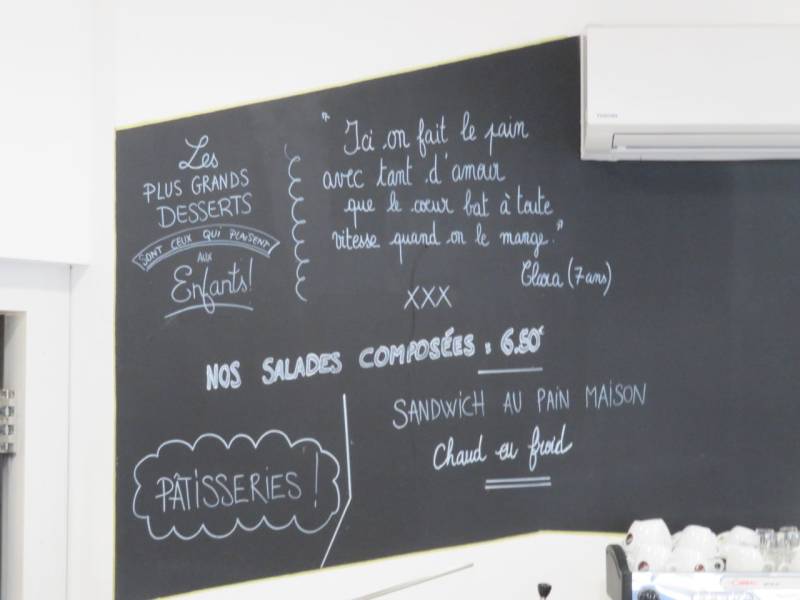 Les
PLUS GRANDS
DESSERTS
SONT CEUX QUI PLAISENT
AUX
Enfants!
" Ici on fait le pain
avec tant d'amour
que le cœur bat à toute
vitesse quand on le mange."
Clara (7 ans)
XXX
NOS SALADES COMPOSÉES : 6.50€
SANDWICH AU PAIN MAISON
Chaud ou froid
PÂTISSERIES !
TOSHIBA